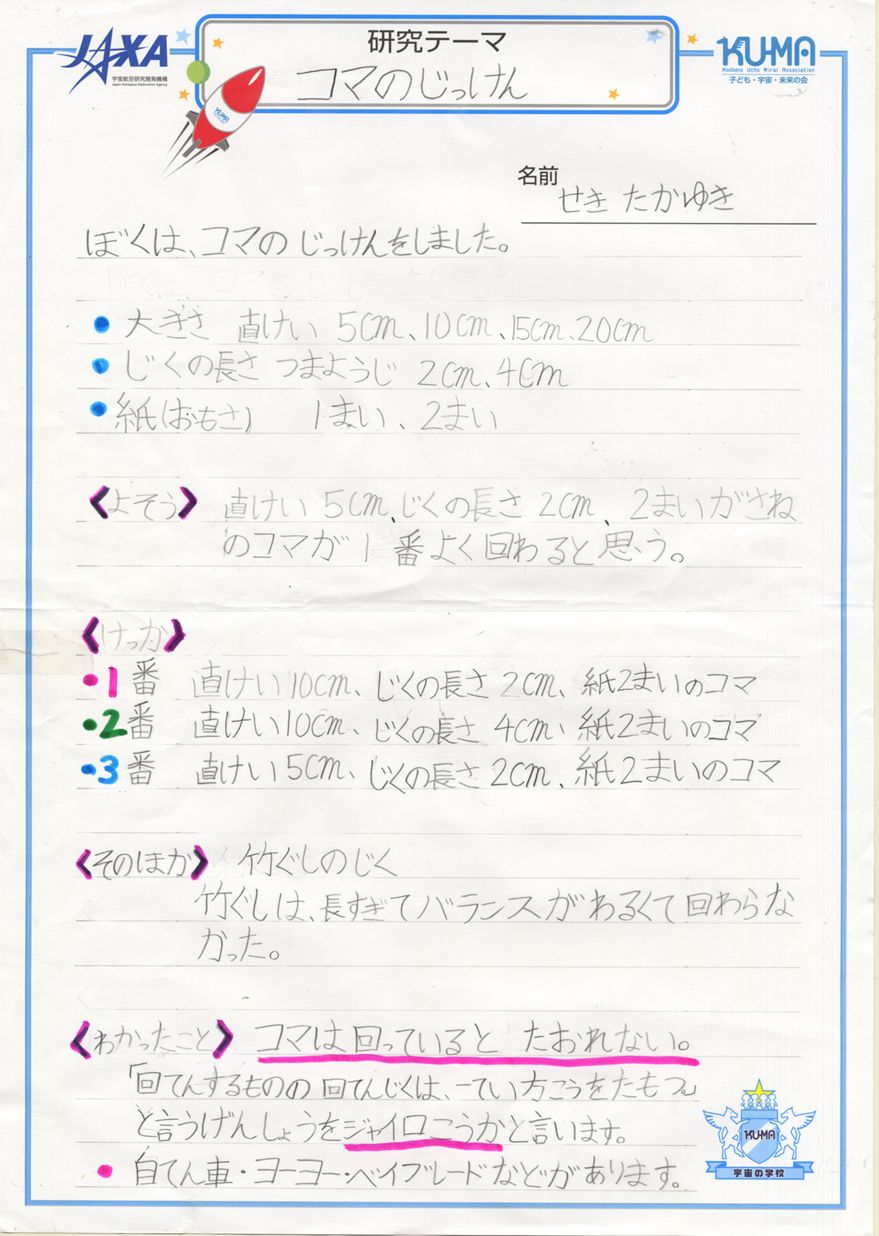 JAXA
宇宙航空研究開発機構
Japan Aerospace Exploration Agency
研究テーマ
コマのじっけん
KUMA
Kodomo Uchu Mirai Association
子ども・宇宙・未来の会
KUMA
名前
せき たかゆき
ぼくは、コマの じっけんをしました。
● 大きさ 直けい 5cm、10cm、15cm、20cm
● じくの長さ つまようじ 2cm、4cm
● 紙(おもさ) 1まい、2まい
《よそう》 直けい 5cm、じくの長さ 2cm、2まいがさね
のコマが 1番よく回わると思う。
《けっか》
●1番 直けい10cm、じくの長さ2cm、紙2まいのコマ
●2番 直けい10cm、じくの長さ4cm、紙2まいのコマ
●3番 直けい5cm、じくの長さ2cm、紙2まいのコマ
《そのほか》 竹ぐしのじく
竹ぐしは、長すぎてバランスがわるくて回わらな
かった。
《わかったこと》 コマは回っていると たおれない。
「回てんするものの回てんじくは、一てい方こうをたもつ。」
と言うげんしょうをジャイロこうかと言います。
● 自てん車・ヨーヨー・ベイブレードなどがあります。
KUMA
宇宙の学校